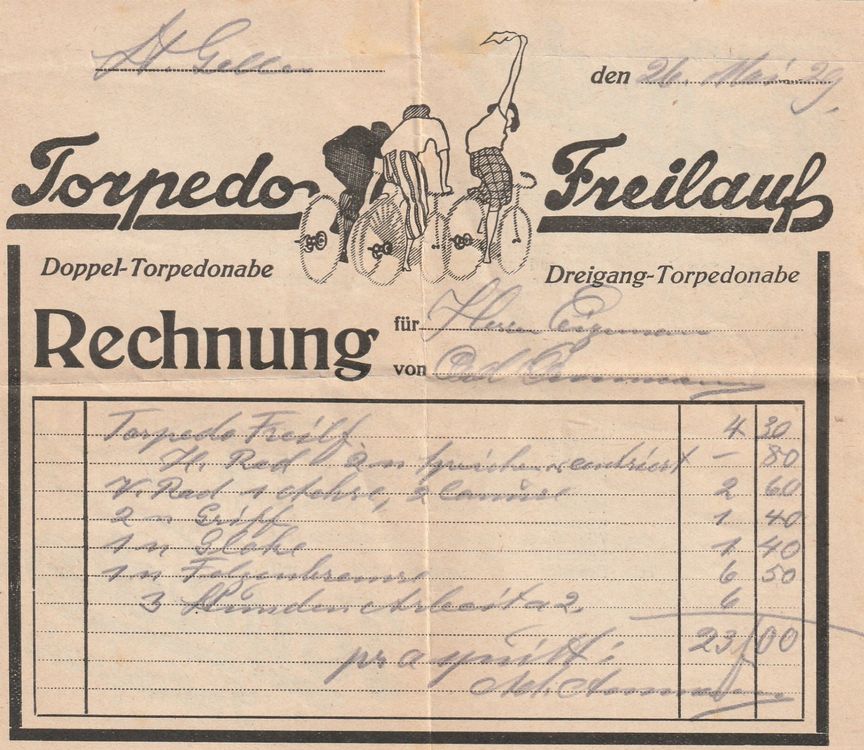 St. Gallen
den 26. Mai 29.
Torpedo Freilauf
Doppel-Torpedonabe Dreigang-Torpedonabe
Rechnung
für Herrn
von
Torpedo Freilf 4 30
H. Rad 2 n Speichen u. centriert – 80
V. Rad 1 Achse, 2 Conuse 2 60
2 n Griff 1 40
1 n Gloke 1 40
1 n Felgenbremse 6 50
3 Stunden Arbeit a 2. 6
23 00
pr aquitt: